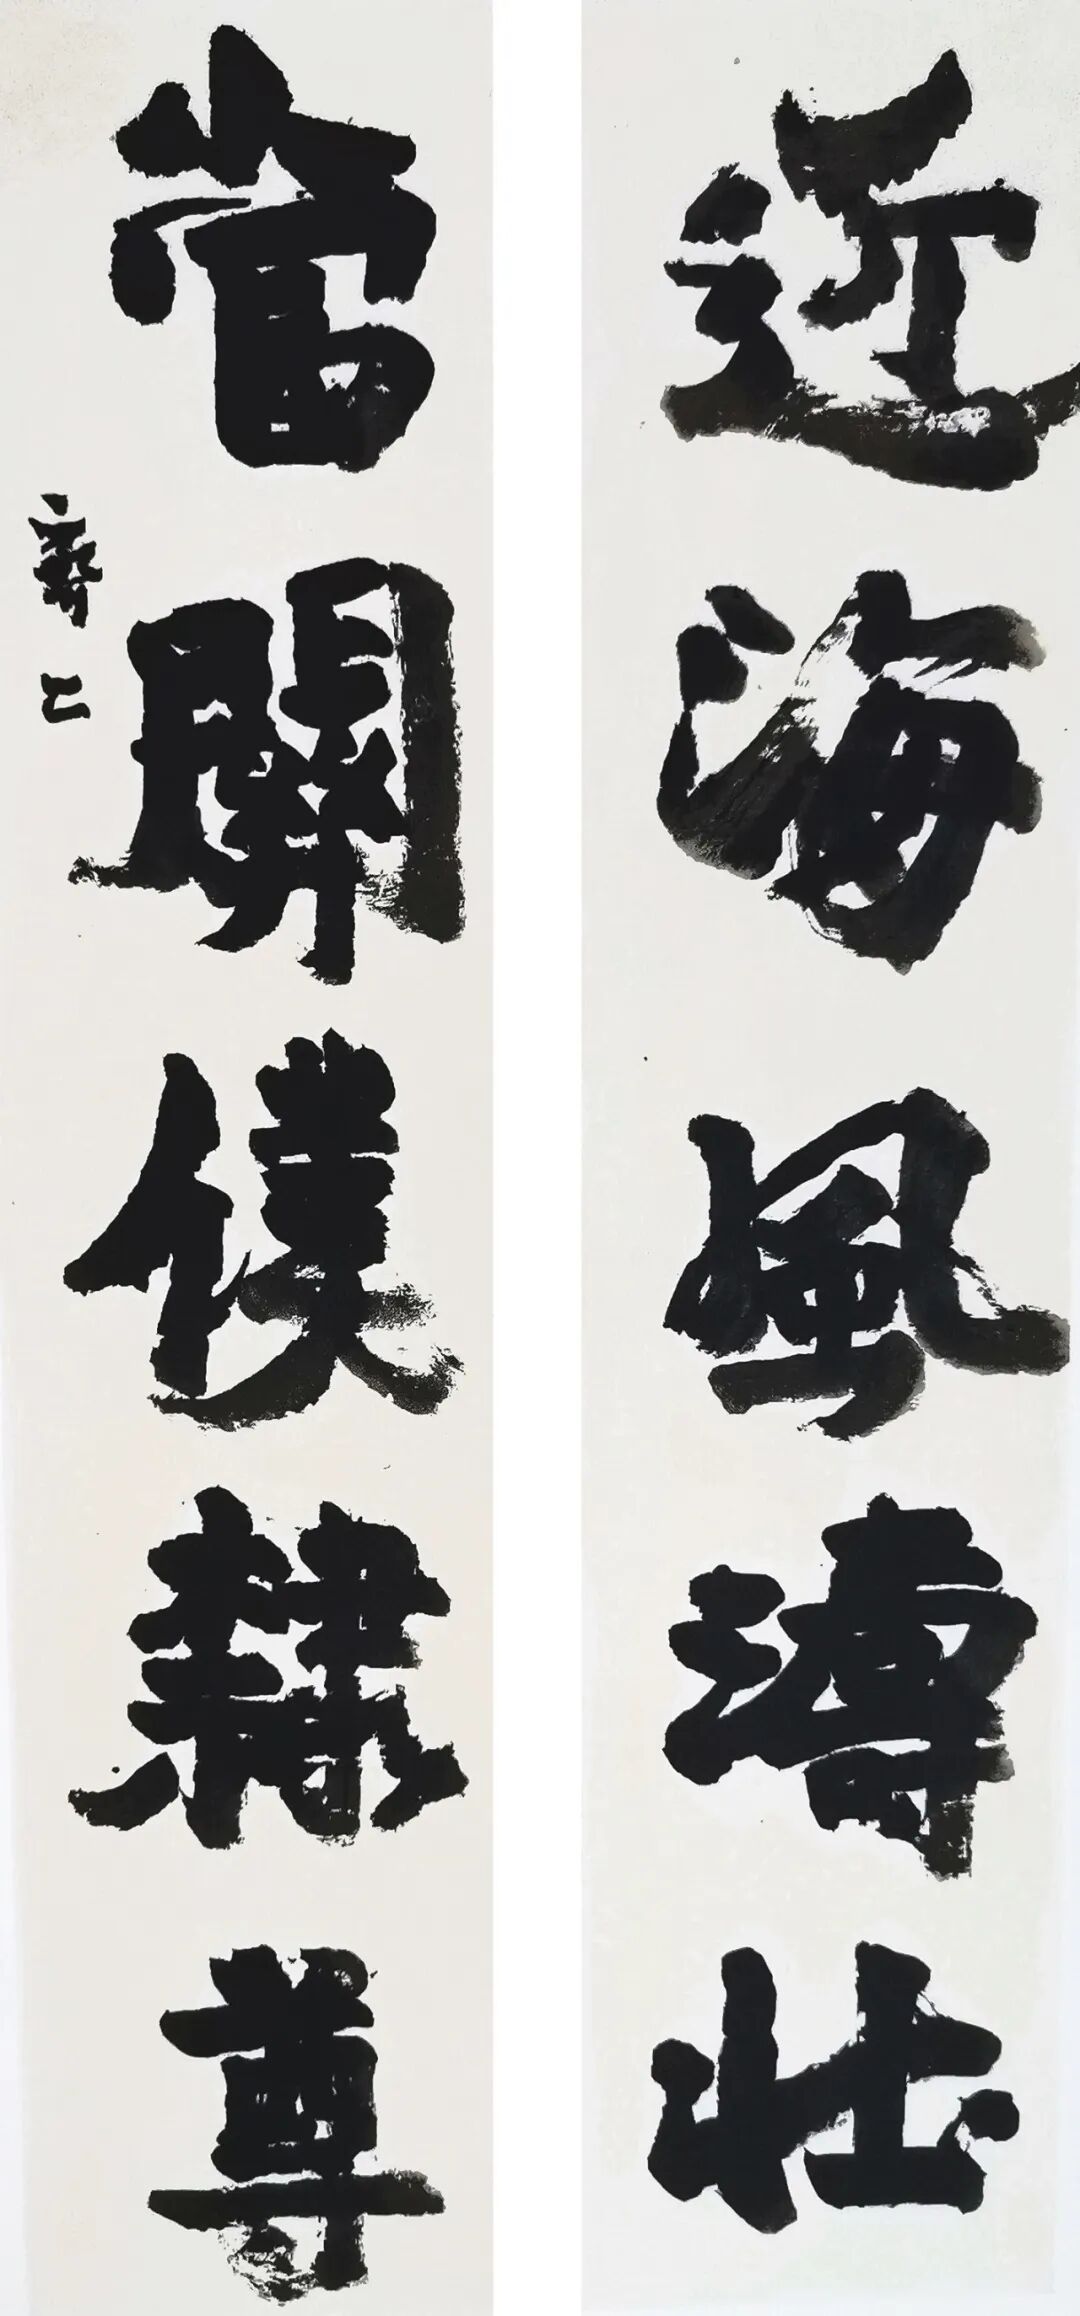 近海風濤壯
當關僕隸尊